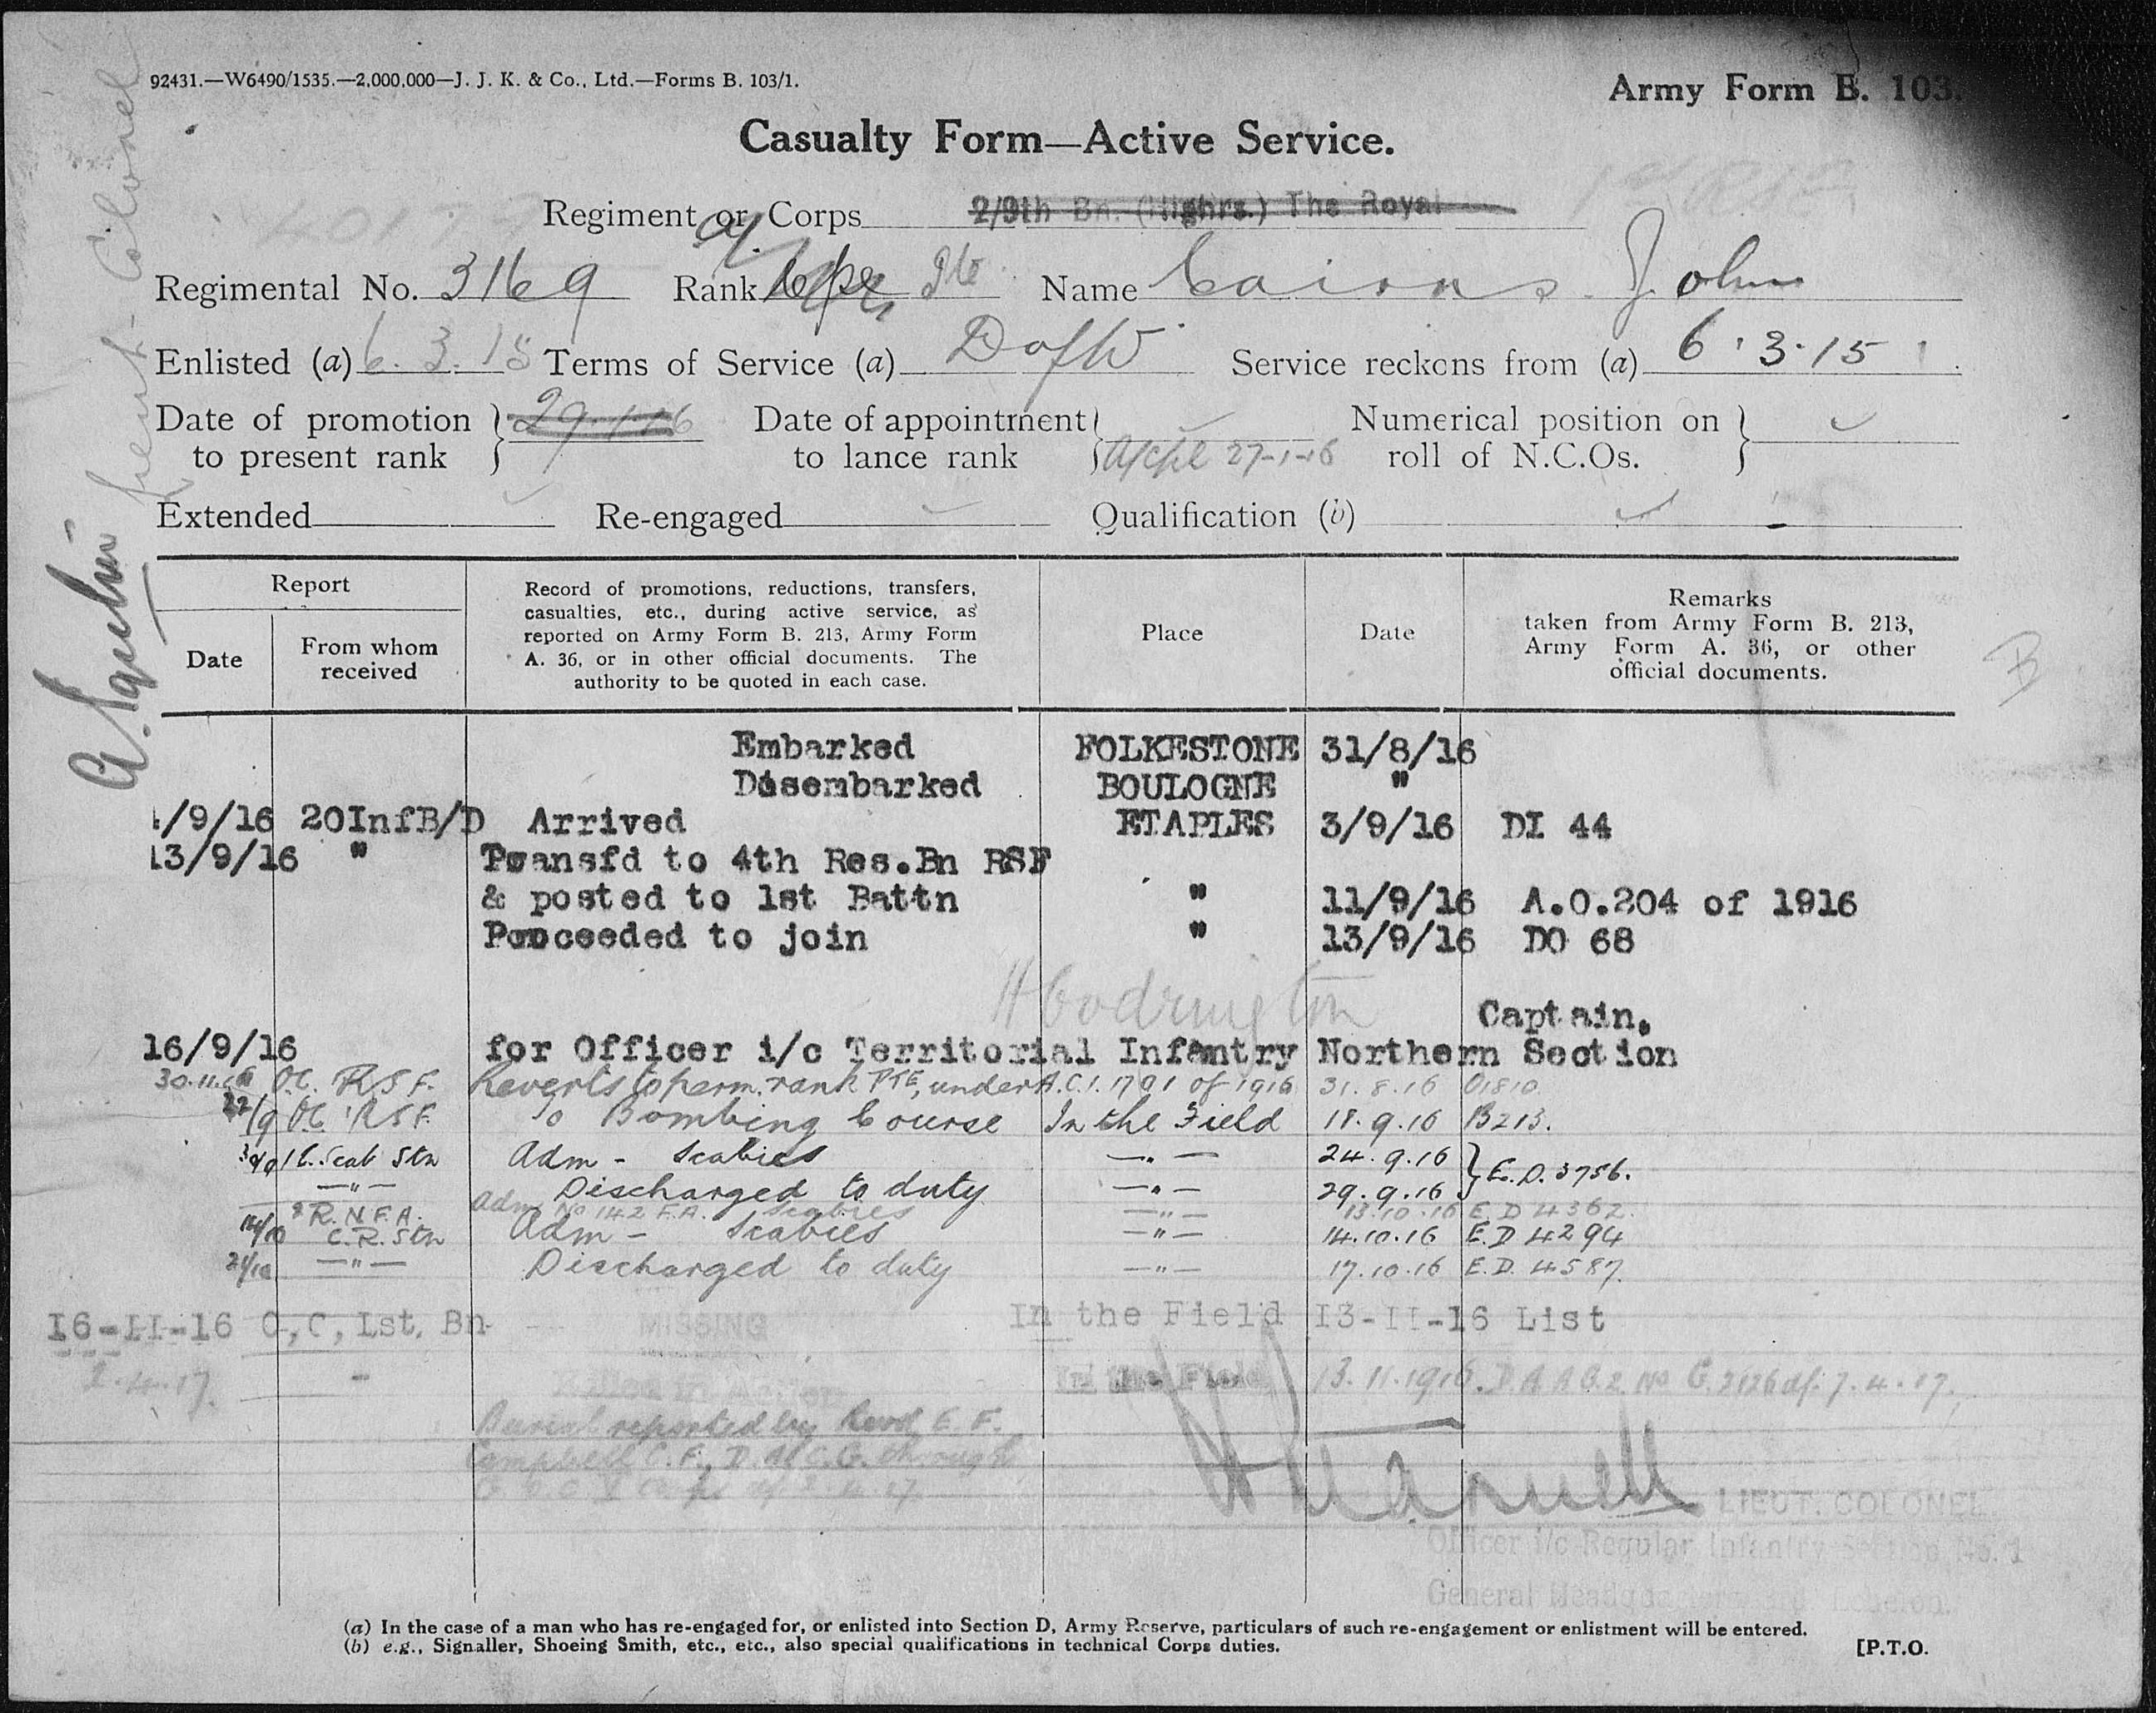 92431.—W6490/1535.—2,000,000—J. J. K. & Co., Ltd.—Forms B. 103/1.
Army Form B. 103.
Casualty Form—Active Service.
Regiment or Corps 2/9th Bn. (Highrs.) The Royal
Regimental No. 3169 Rank Pte Name Cairns John
Enlisted (a) 6.3.15 Terms of Service (a) D of W Service reckons from (a) 6.3.15
Date of promotion to present rank 29.1.16 Date of appointment to lance rank A/Cpl 27-1-16 Numerical position on roll of N.C.Os.
Extended Re-engaged Qualification (b)
Report
Date
From whom received
Record of promotions, reductions, transfers,
casualties, etc., during active service, as
reported on Army Form B. 213, Army Form
A. 36, or in other official documents. The
authority to be quoted in each case.
Place
Date
Remarks
taken from Army Form B. 213,
Army Form A. 36, or other
official documents.
Embarked FOLKESTONE 31/8/16
Disembarked BOULOGNE "
/9/16 20InfB/D Arrived ETAPLES 3/9/16 DI 44
13/9/16 " Transfd to 4th Res.Bn RSF
& posted to 1st Battn " 11/9/16 A.O.204 of 1916
Proceeded to join " 13/9/16 DO 68
H Codrington
Captain.
16/9/16 for Officer i/c Territorial Infantry Northern Section
30.11.16 OC. RSF. Reverts to perm. rank PTE, under A.C.I. 1791 of 1916 31.8.16 O1810
22/9 OC 1RSF. To Bombing Course In the Field 18.9.16 B213.
30/9 C. Scab Stn Adm - Scabies —"— 24.9.16 } E.D. 3756.
—"— Discharged to duty —"— 29.9.16
R.N.F.A. Adm No 142 F.A. Scabies —"— 13.10.16 E.D 4362.
14/10 C.R. Stn Adm - Scabies —"— 14.10.16 E.D 4294
21/10 —"— Discharged to duty —"— 17.10.16 E.D. 4587.
16-11-16 O,C, 1st, Bn MISSING In the Field 13-11-16 List
2.4.17. - Killed in Action In the Field 13.11.1916. D.A.A.G.2 No G.2126 df. 7.4.17.
Burial reported by Revd E. F.
Campbell C.F., D.A.C.G. through
LIEUT. COLONEL
Officer i/c Regular Infantry Section No. 1
General Headquarters 3rd Echelon.
(a) In the case of a man who has re-engaged for, or enlisted into Section D, Army Reserve, particulars of such re-engagement or enlistment will be entered.
(b) e.g., Signaller, Shoeing Smith, etc., etc., also special qualifications in technical Corps duties.
[P.T.O.
Lieut-Colonel
B